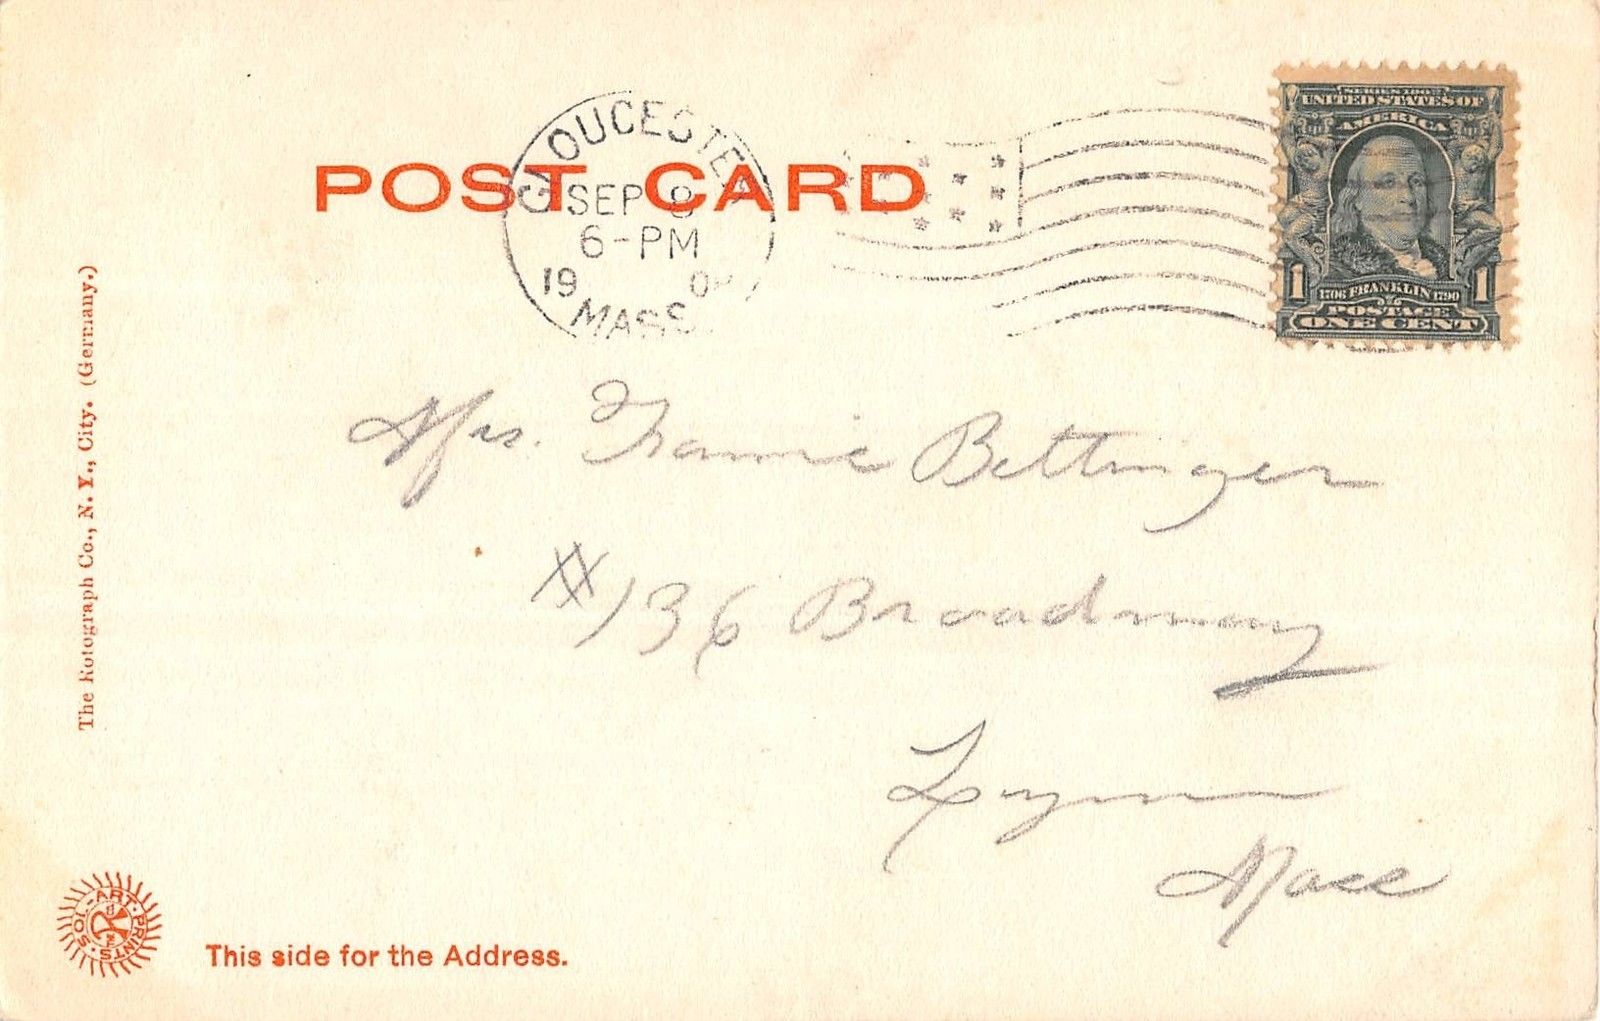 POST CARD
GLOUCESTER
SEP 8
6-PM
19 0
MASS.
SERIES 1902
UNITED STATES OF
AMERICA
1 1
1706 FRANKLIN 1790
POSTAGE
ONE CENT
Mrs. Fannie Bettinger
#136 Broadway
Lynn
Mass
The Rotograph Co., N. Y., City. (Germany.)
SOL-ART PRINTS
This side for the Address.